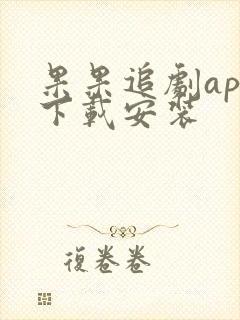 果果追劇ap
下載安裝
復卷卷